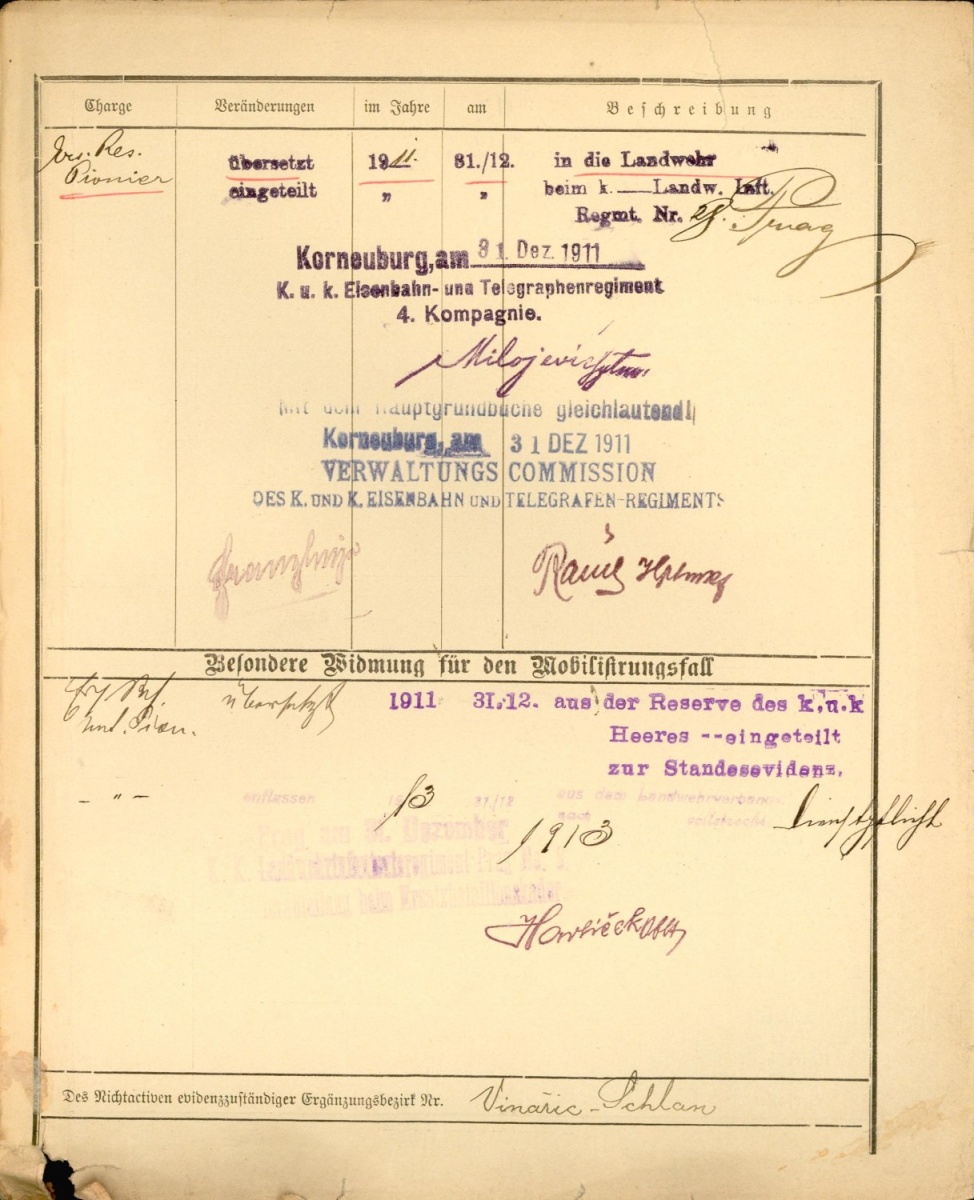 Charge Veränderungen im Jahre am Beschreibung
Ers. Res. übersetzt 1911. 31./12. in die Landwehr
Pionier eingeteilt " " beim k. — Landw. Inft.
Regmt. Nr. 28. Prag
Korneuburg, am 31. Dez. 1911
K. u. k. Eisenbahn- und Telegraphenregiment
4. Kompagnie.
Milojević Hptm.
Mit dem Hauptgrundbuche gleichlautend!
Korneuburg, am 31 DEZ 1911
VERWALTUNGS COMMISSION
DES K. UND K. EISENBAHN UND TELEGRAFEN-REGIMENTS
Besondere Widmung für den Mobilisirungsfall
übersetzt 1911 31.12. aus der Reserve des k.u.k
Heeres --eingeteilt
zur Standesevidenz.
- " - entlassen 13 31/12 aus dem Landwehrverbande
nach Dienstpflicht
Prag am 31. Dezember 1913
K. K. Landwehrinfanterieregiment Prag No. 8.
Oblt
Des Nichtactiven evidenzzuständiger Ergänzungsbezirk Nr. Vinařic - Schlan